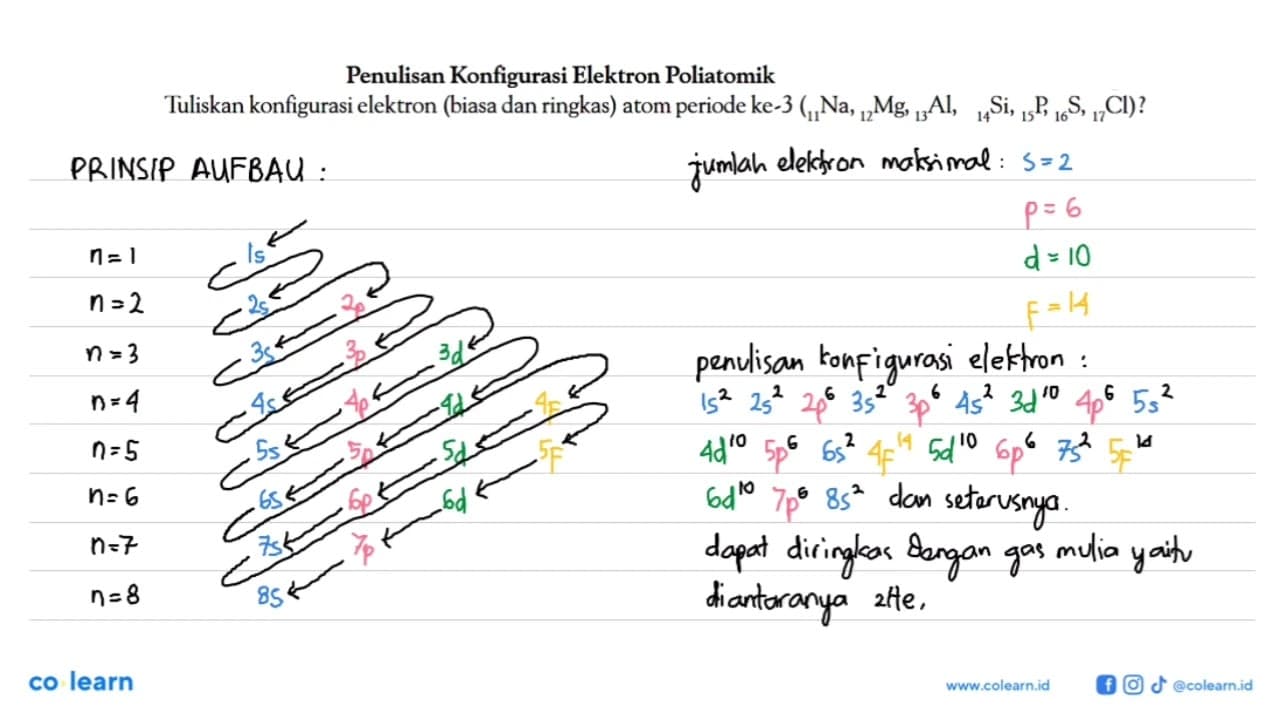 Penulisan Konfigurasi Elektron Poliatomik
Tuliskan konfigurasi elektron (biasa dan ringkas) atom periode ke-3 (₁₁Na, ₁₂Mg, ₁₃Al, ₁₄Si, ₁₅P, ₁₆S, ₁₇Cl)?
PRINSIP AUFBAU :
n = 1 1s
n = 2 2s 2p
n = 3 3s 3p 3d
n = 4 4s 4p 4d 4F
n = 5 5s 5p 5d 5F
n = 6 6s 6p 6d
n = 7 7s 7p
n = 8 8s
jumlah elektron maksimal : s = 2
p = 6
d = 10
F = 14
penulisan konfigurasi elektron :
1s² 2s² 2p⁶ 3s² 3p⁶ 4s² 3d¹⁰ 4p⁶ 5s²
4d¹⁰ 5p⁶ 6s² 4F¹⁴ 5d¹⁰ 6p⁶ 7s² 5F¹⁴
6d¹⁰ 7p⁶ 8s² dan seterusnya.
dapat diringkas dengan gas mulia yaitu
diantaranya ₂He,
co learn
www.colearn.id @colearn.id